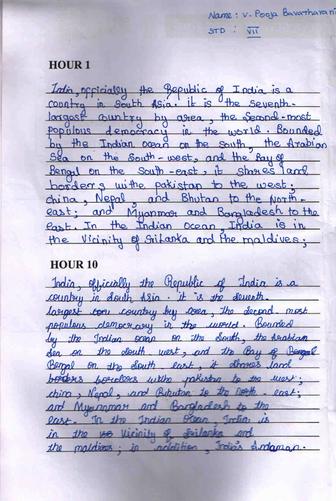 Name : V. Pooja Bavatharani
STD : VII
HOUR 1
India, officially the Republic of India is a
country in South Asia. it is the seventh-
largest country by area, the Second-most
populous democracy in the world. Bounded
by the Indian ocean on the south, the Arabian
Sea on the South-west, and the Bay of
Bengal on the south-east, it shares land
borders withe pakistan to the west;
china, Nepal, and Bhutan to the North-
east; and Myanmar and Bangladesh to the
east. In the Indian Ocean, India is in
the Vicinity of SriLanka and the maldives;
HOUR 10
India, officially the Republic of India is a
country in South Asia. it is the Seventh.
largest country by area, the Second. most
populous democracy in the world. Bounded
by the Indian ocean on the South, the Arabian
Sea on the South west, and the Bay of Bengal
Bengal on the South. east, it shares land
borders withe pakistan to the west;
china, Nepal, and Bhutan to the North. east;
and Myanmar and Bangladesh to the
east. In the Indian Ocean India is
in the Vicinity of SriLanka and
the maldives; in addition, India's Andaman.